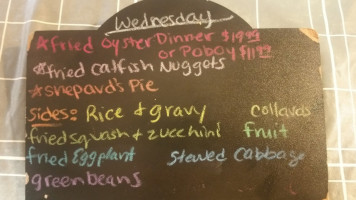 Wednesday
*fried oyster Dinner $19.99
or Poboy $11.99
*fried Catfish Nuggets
*shepard's Pie
Sides: Rice & gravy collards
fried squash + zucchini fruit
fried Eggplant Stewed Cabbage
greenbeans